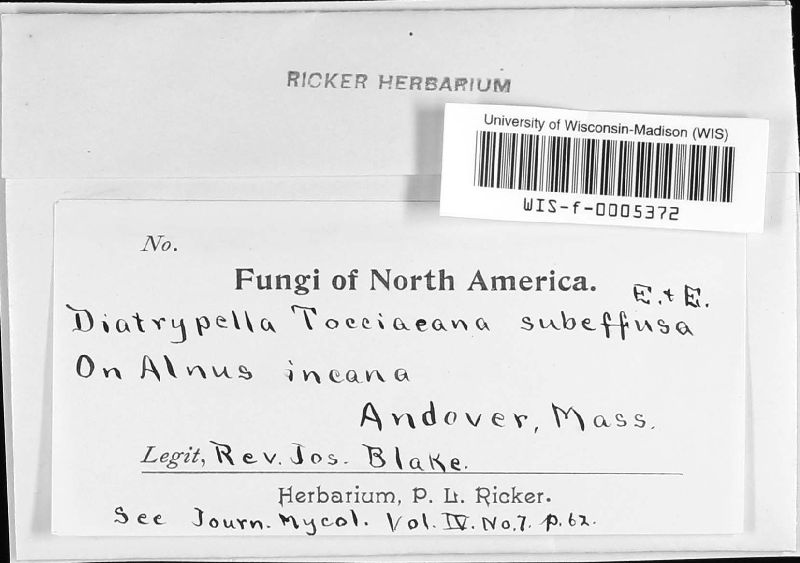 RICKER HERBARIUM
University of Wisconsin-Madison (WIS)
WIS-f-0005372
No.
Fungi of North America.
E. & E.
Diatrypella Tocciaeana subeffusa
On Alnus incana
Andover, Mass.
Legit, Rev. Jos. Blake.
Herbarium, P. L. Ricker.
See Journ. Mycol. Vol. IV. No. 7. p. 62.